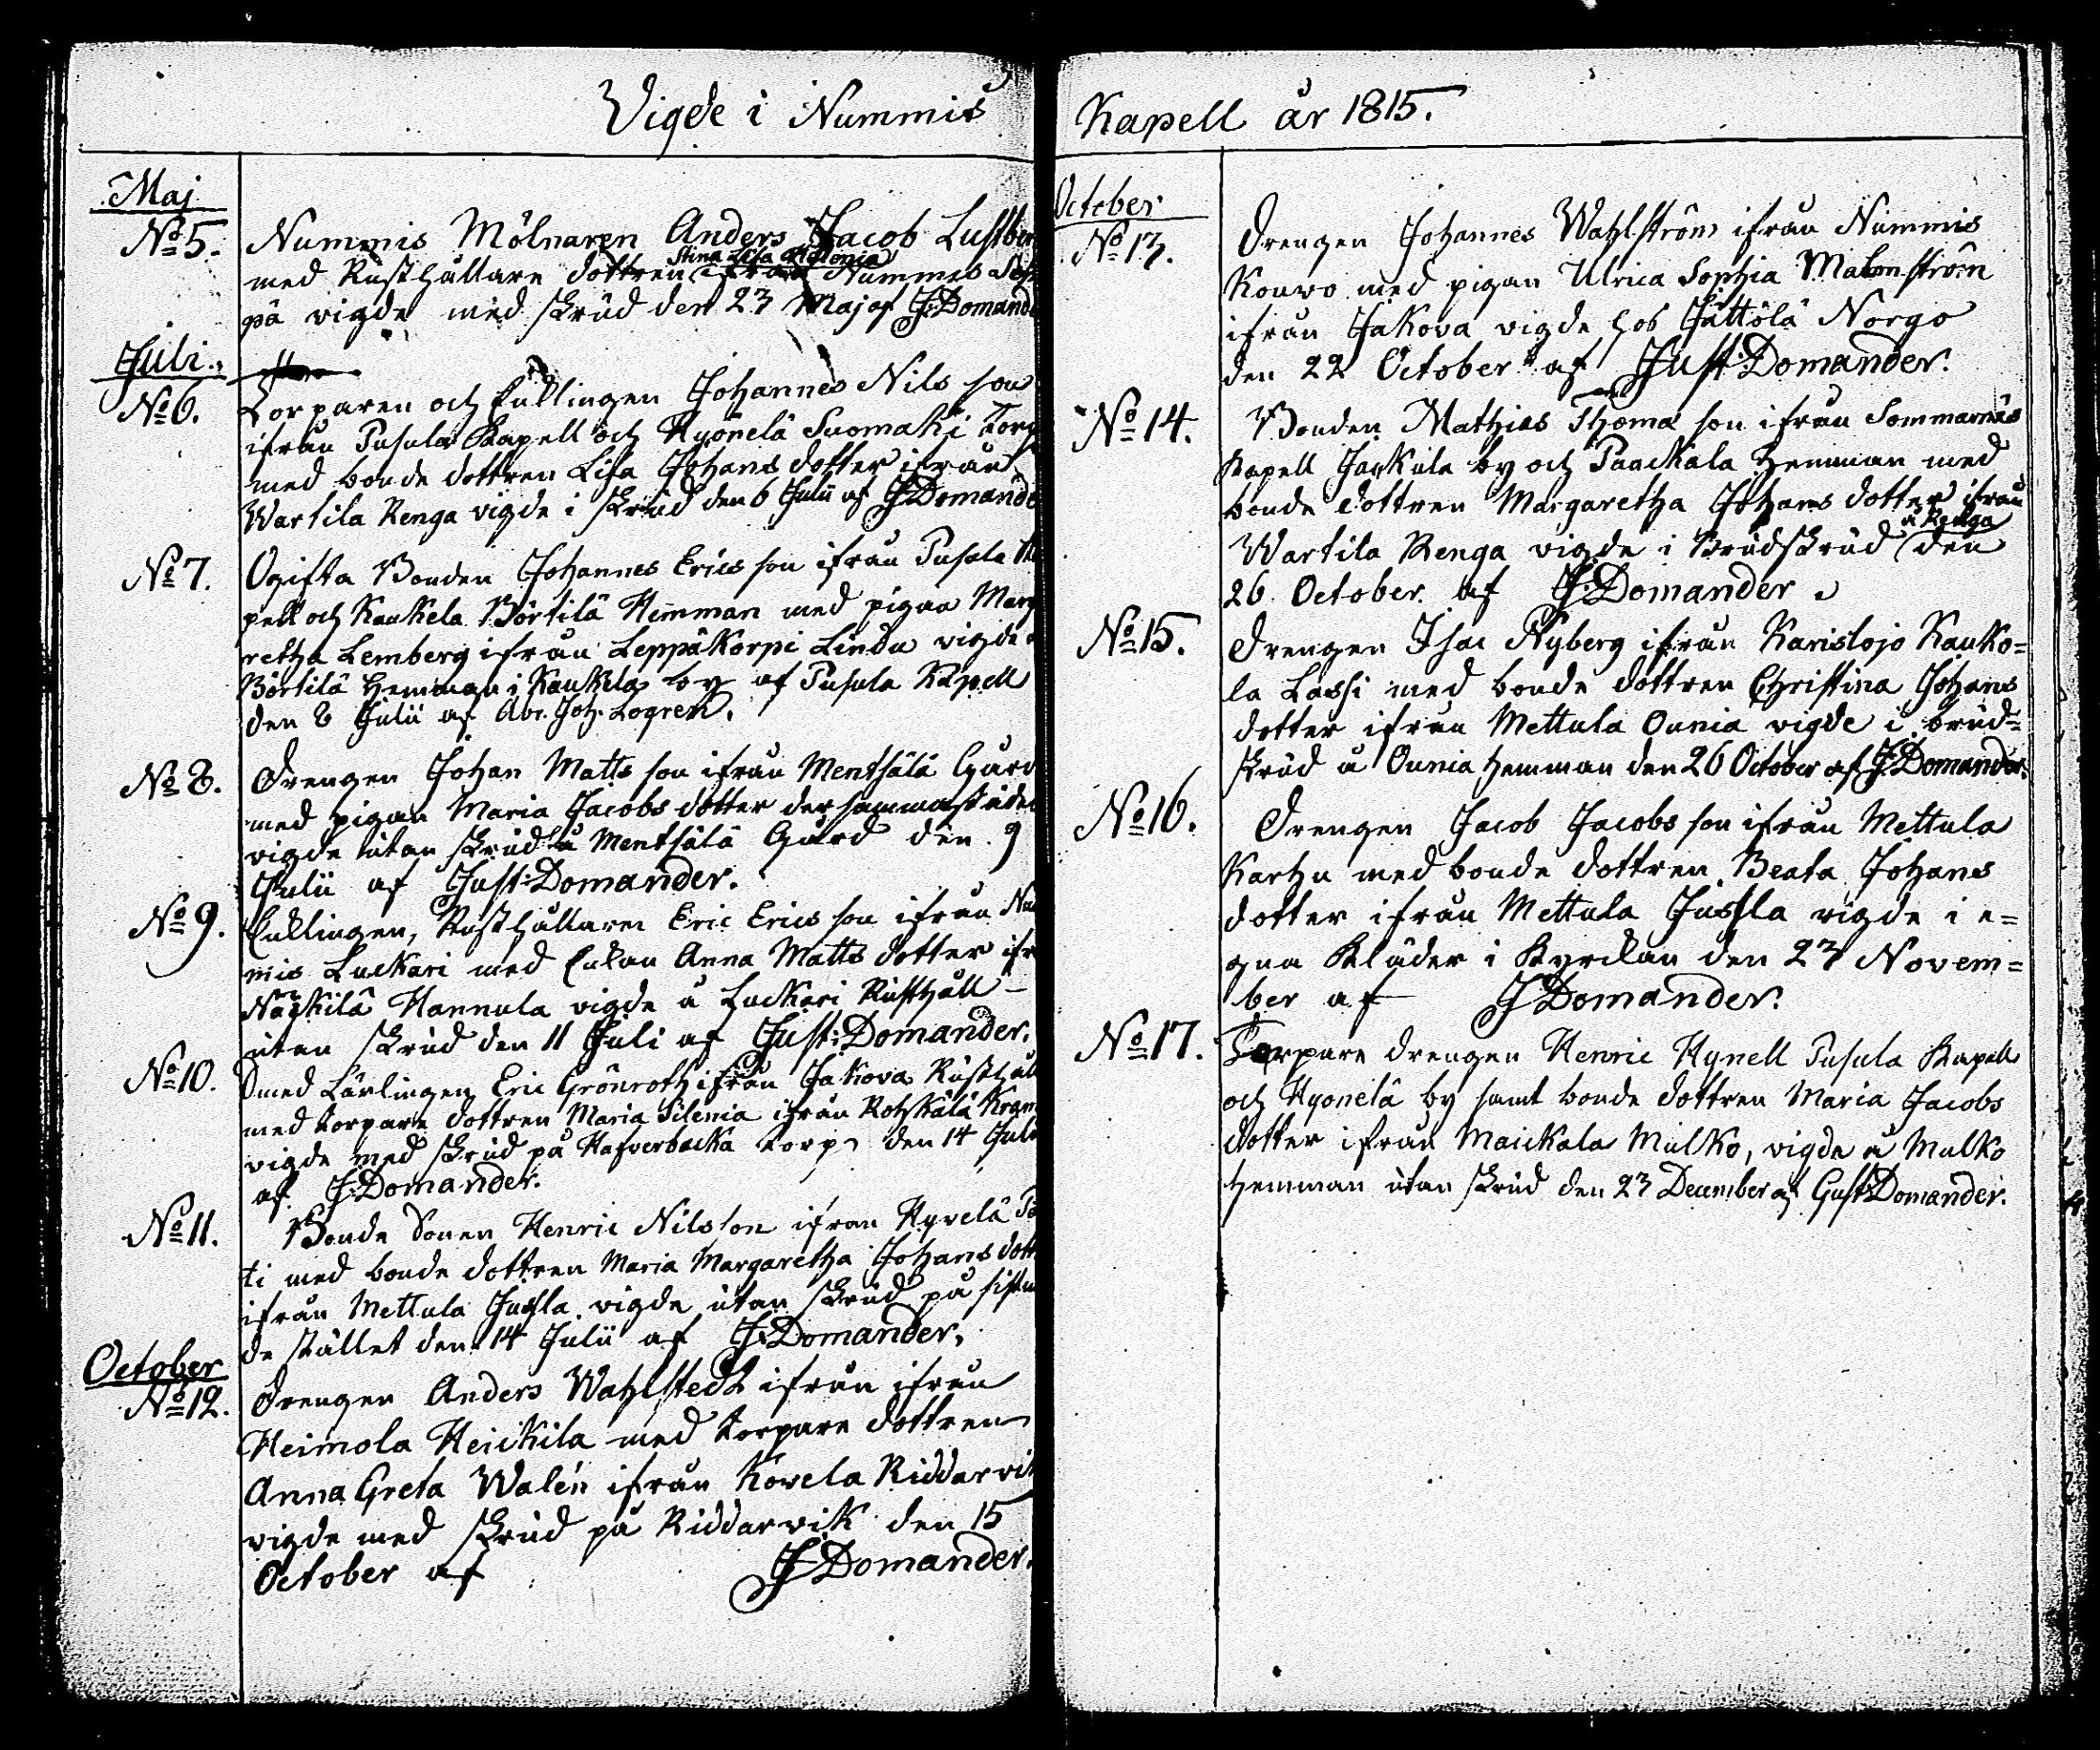 Vigde i Nummis
Maj
No 5. Nummis Mölnaren Anders Jacob Lustber
Stina Lisa
med Rusthållare dottren ifrån Nummis
på vigde med skrud den 23 Maj af J: Domand
Julii
No 6. Torparen och Enklingen Johannes Nils son
ifrån Pusula Kapell och Hyönelä Suomaki Torp
med bonde dottren Lisa Johans dotter ifrån
Wartila Renga vigde i skrud den 6 Julii af J: Domande
No 7. Ogifta Bonden Johannes Erics son ifrån Pusula Ka
pell och Kaukela Börtilä Hemman med pigan Marg
retha Lemberg ifrån Leppäkorpi Lindu vigde
Börtilä Hemman i Kaukela by af Pusula Kapell
den 8 Julii af Abr. Joh. Logren.
No 8. Drengen Johan Matts son ifrån Mentsälä Gård
med pigan Maria Jacobs dotter dersammastädes
vigde utan skrud å Mentsälä Gård den 9
Julii af Just: Domander.
No 9. Enklingen, Rusthållaren Eric Erics son ifrån Nu
mis Luckari med Enkan Anna Matts dotter ifr
Näckilä Hannula vigde å Luckari Rusthåll
utan skrud den 11 Juli af Just: Domander.
No 10. Smed Lärlingen Eric Grönroth ifrån Jakova Rusthåll
med torpare dottren Maria Silenia ifrån Rotzkälä
vigde med skrud på Hafverbacka torp den 14 Julii
af J: Domander.
No 11. Bonde Sonen Henric Nils son ifrån Hyvelä
ti med bonde dottren Maria Margaretha Johans dott
ifrån Mettula Jussla vigde utan skrud på sistn
de stället den 14 Julii af J: Domander,
October
No 12. Drengen Anders Wahlstedt ifrån ifrån
Heimola Heickila med torpare dottren
Anna Greta Walén ifrån Kowela Riddarvik
vigde med skrud på Riddarvik den 15
October af J Domander.
Kapell år 1815.
October
No 13. Drengen Johannes Wahlström ifrån Nummis
Kouvo med pigan Ulrica Sophia Malmström
ifrån Jakova vigde hos Jättölä Norgo
den 22 October af Just: Domander.
No 14. Bonden Mathias Thomæ son ifrån Sommarnäs
Kapell Jackula by och Paackala Hemman med
bonde dottren Margaretha Johans dotter ifrån
å Renga
Wartila Renga vigde i Brudskrud den
26 October af J: Domander
No 15. Drengen Isac Nyberg ifrån Karislojo Kauko=
la Lassi med bonde dottren Christina Johans
dotter ifrån Mettula Ounia vigde i brud=
skrud å Ounia Hemman den 26 October af J: Domander.
No 16. Drengen Jacob Jacobs son ifrån Mettula
Karhu med bonde dottren Beata Johans
dotter ifrån Mettula Jussla vigde i e=
gna Kläder i Kyrckan den 23 Novem=
ber af J Domander.
No 17. Torpare drengen Henric Hynell Pusula Kapell
och Hyonelä by samt bonde dottren Maria Jacobs
dotter ifrån Maickala Mulko, vigde å Mulko
Hemman utan skrud den 23 December af Gust: Domander.